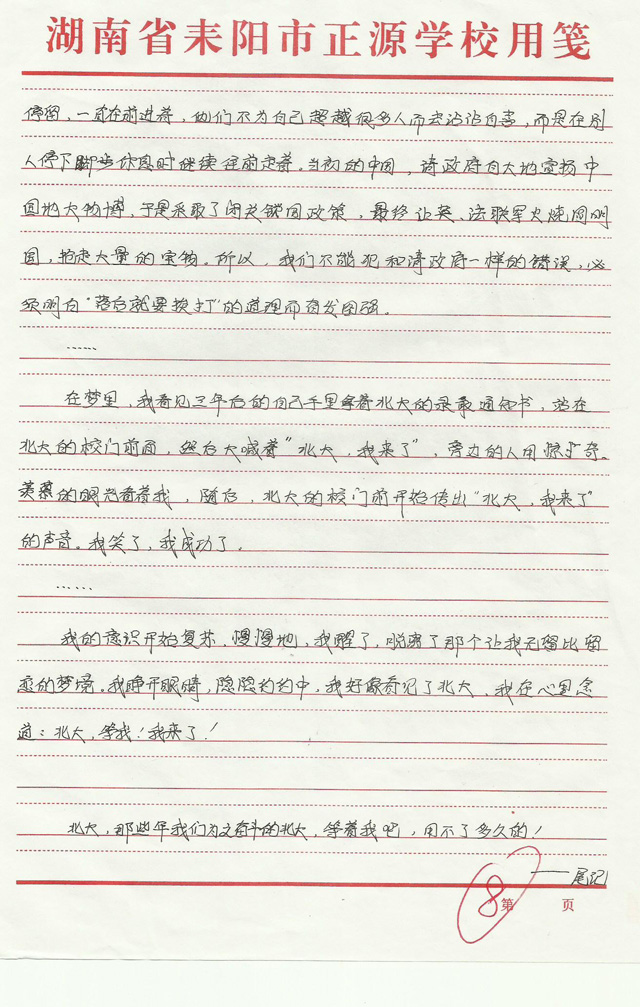 湖南省耒阳市正源学校用笺
停留，一直在前进着，他们不为自己超越很多人而去沾沾自喜，而是在别
人停下脚步休息时继续往前走着。当初的中国，清政府自大地宣扬中
国地大物博，于是采取了闭关锁国政策，最终让英、法联军火烧圆明
园，拍走大量的宝物。所以，我们不能犯和清政府一样的错误，必
须明白“落后就要挨打”的道理而奋发图强。
……
在梦里，我看见三年后的自己手里拿着北大的录取通知书，站在
北大的校门前面，然后大喊着“北大，我来了”，旁边的人用惊奇、
羡慕的眼光看着我，随后，北大的校门前开始传出“北大，我来了”
的声音。我笑了，我成功了。
……
我的意识开始复苏，慢慢地，我醒了，脱离了那个让我无留比留
恋的梦境。我睁开眼睛，隐隐约约中，我好像看见了北大，我在心里念
道：北大，等我！我来了！
北大，那些年我们为之奋斗的北大，等着我吧，用不了多久的！
——尾记
第 8 页